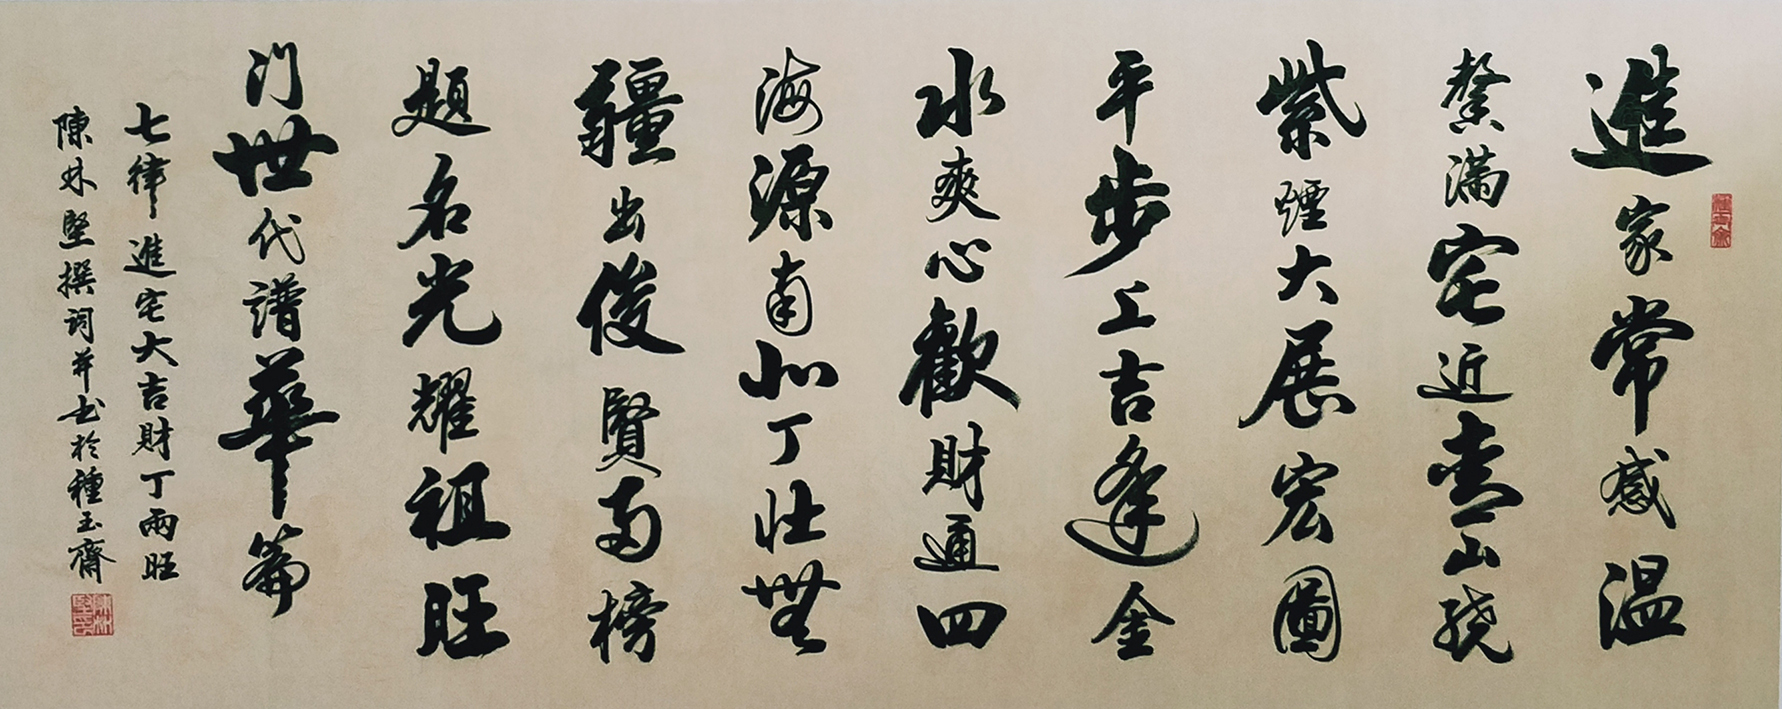 進家常感温
馨满宅近青山绕
紫煙大展宏圖
平步上吉逢金
水爽心歡財通四
海源南北丁壮無
疆出俊賢两榜
題名光耀祖旺
门世代譜華篇
七律進宅大吉財丁兩旺
陳林堅撰词并书於種玉齋